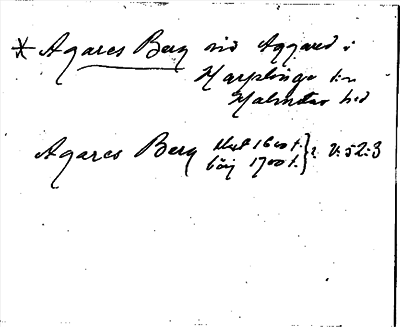 * Agares Berg vid Aggared i
Harplinge sn
Halmstad hd
Agares Berg slut 1600 t.
börj 1700 t. } : V: 52: 3